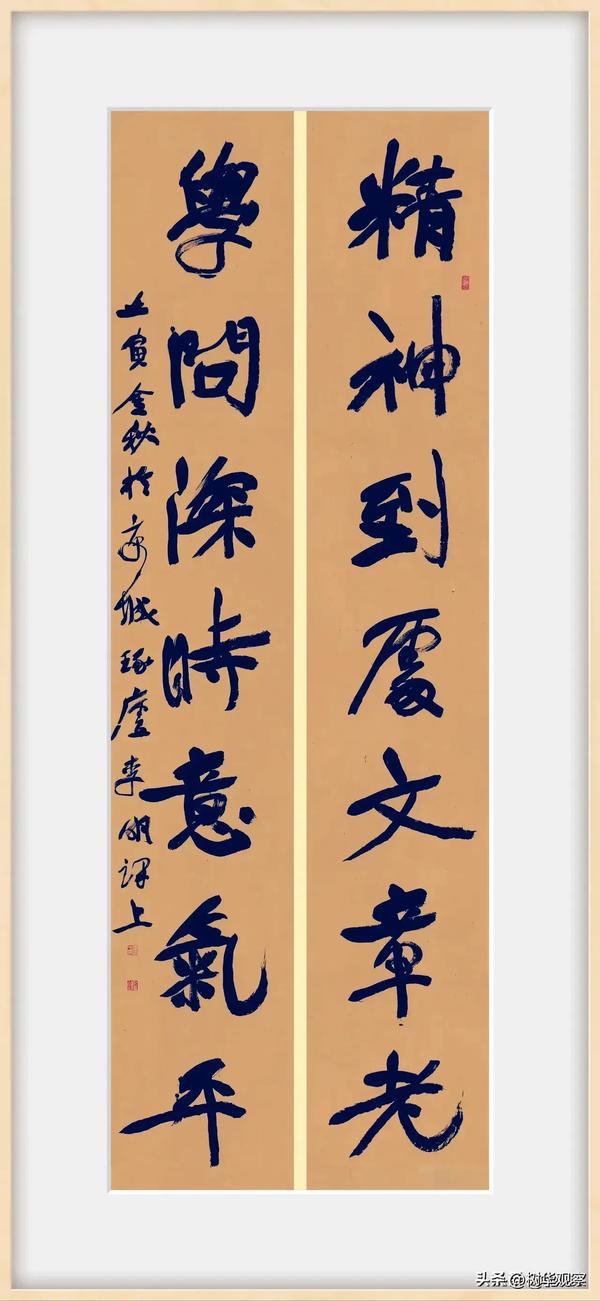 精神到處文章老
學問深時意氣平
壬寅金秋於京城琢廬李明上
头条 @树华观察